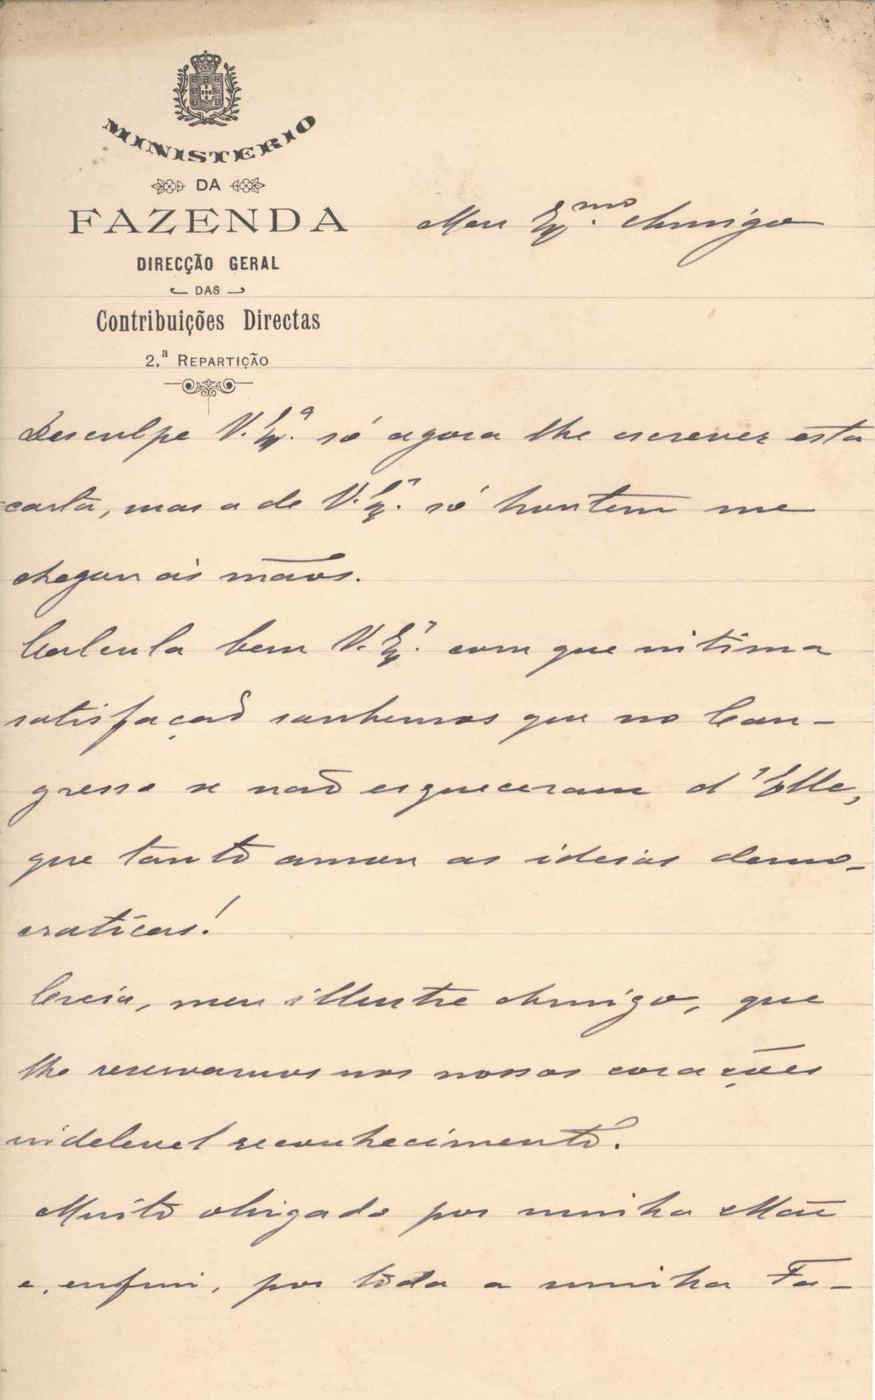 MINISTERIO
DA
FAZENDA
DIRECÇÃO GERAL
DAS
Contribuições Directas
2.ª REPARTIÇÃO
Meu Ex.mo Amigo
Desculpe V. Ex.ª só agora lhe escrever esta
carta, mas a de V. Ex.ª só hontem me
chegou ás mãos.
Calcula bem V. Ex.ª com que intima
satisfação soubemos que no Con-
gresso se não esqueceram d'Elle,
que tanto amou as ideias demo-
craticas!
Creia, meu illustre Amigo, que
lhe reservamos nos nossos corações
indelevel reconhecimento.
Muito obrigado por minha Mãe
e, enfim, por toda a minha Fa-